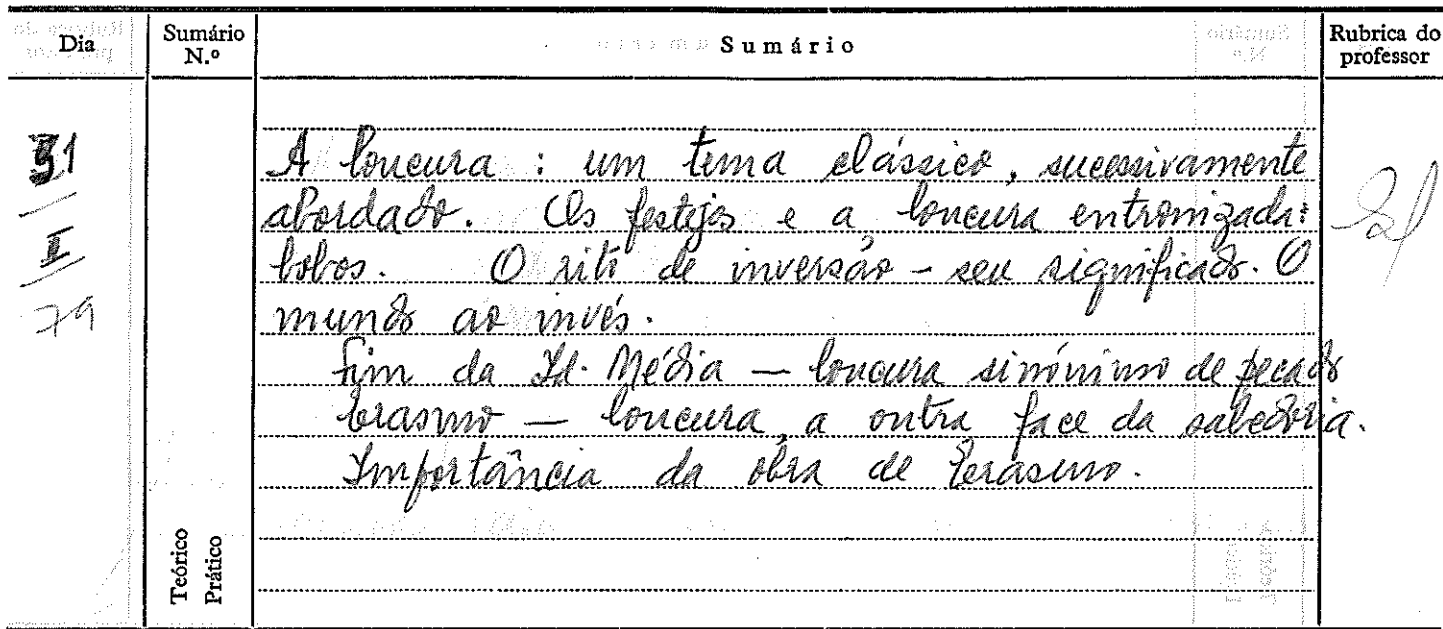 Dia
Sumário N.º
Sumário
Rubrica do professor
31
I
79
A loucura : um tema clássico, sucessivamente
abordado. Os festejos e a loucura entronizada:
bobos. O rito de inversão - seu significado. O
mundo ao invés.
Fim da Id. Média — loucura sinónimo de pecado
Erasmo — loucura, a outra face da sabedoria.
Importância da obra de Erasmo.
Teórico
Prático